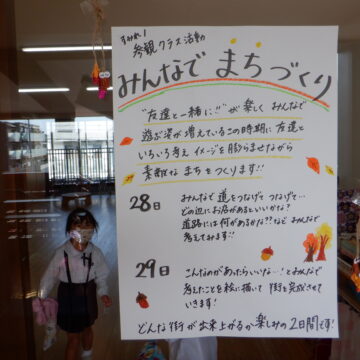 すみれ1
参観クラス活動
みんなで まちづくり
"友達と一緒に!!"が楽しく みんなで
遊ぶ姿が増えているこの時期に友達と
いろいろ考え イメージを膨らませながら
素敵な まちを つくります!!
28日
みんなで 道をつなげて つなげて…
どの辺にお店があるといいかな?
道路には何があるかな??など みんなで
考えてみます!!
29日
こんなのがあったらいいな…!とみんなで
考えたことを絵に描いて 街を完成させて
いきます!
どんな街が出来上がるか楽しみの2日間です!